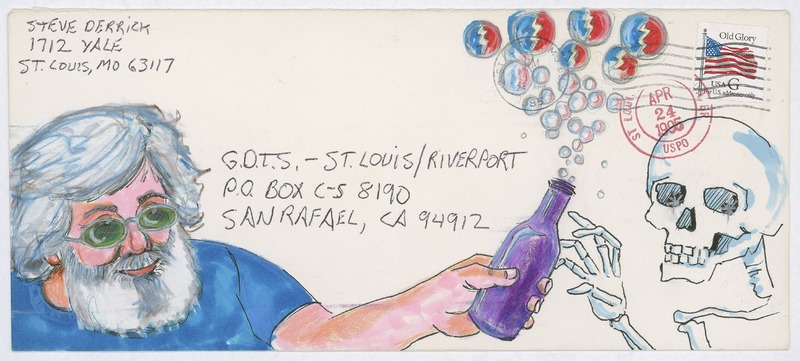 STEVE DERRICK
1712 YALE
ST. LOUIS, MO 63117
Old Glory
USA G
For U.S. addresses only
ST LOUI
APR
24
1995
USPO
G.D.T.S. – ST. LOUIS/RIVERPORT
P.O. BOX C-S 8190
SAN RAFAEL, CA 94912